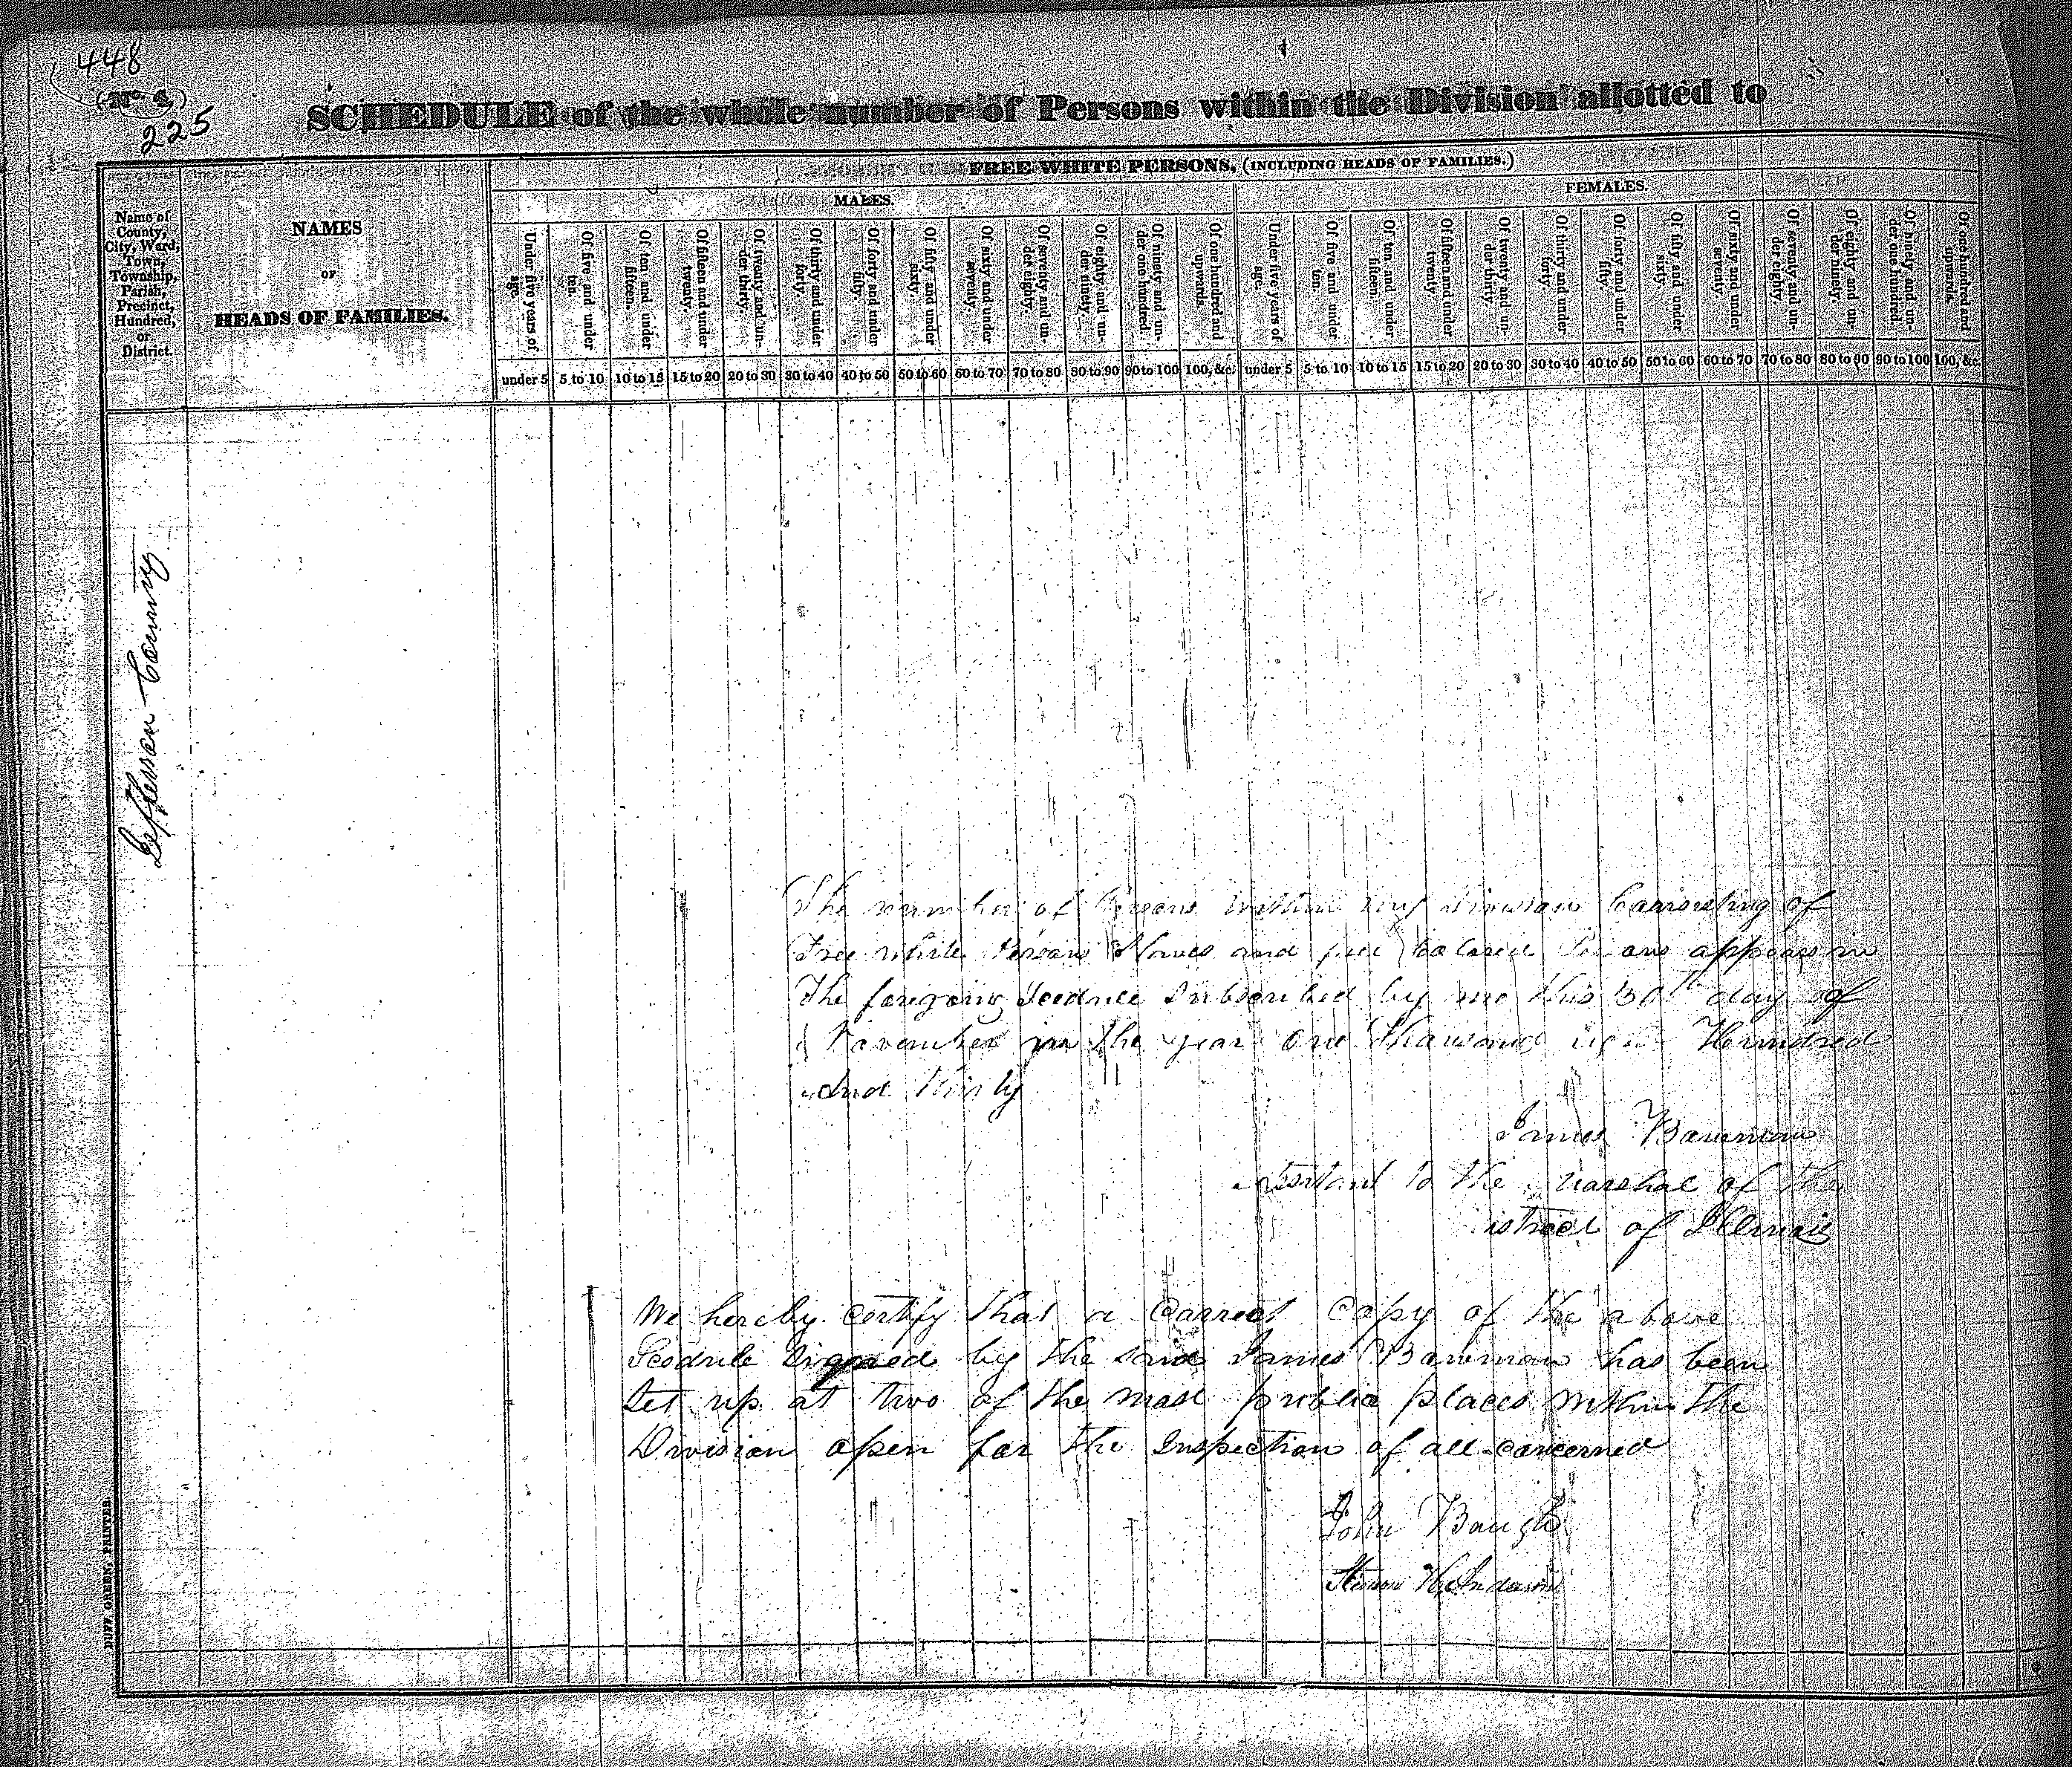 448
(No. 1,)
225
SCHEDULE of the whole number of Persons within the Division allotted to
FREE WHITE PERSONS, (INCLUDING HEADS OF FAMILIES.)
MALES.
FEMALES.
Name of County, City, Ward, Town, Township, Parish, Precinct, Hundred, or District.
NAMES
OF
HEADS OF FAMILIES.
Under five years of age.
Of five and under ten.
Of ten and under fifteen.
Of fifteen and under twenty.
Of twenty and under thirty.
Of thirty and under forty.
Of forty and under fifty.
Of fifty and under sixty.
Of sixty and under seventy.
Of seventy and under eighty.
Of eighty and under ninety.
Of ninety and under one hundred.
Of one hundred and upwards.
Under five years of age.
Of five and under ten.
Of ten and under fifteen.
Of fifteen and under twenty.
Of twenty and under thirty.
Of thirty and under forty.
Of forty and under fifty.
Of fifty and under sixty.
Of sixty and under seventy.
Of seventy and under eighty.
Of eighty and under ninety.
Of ninety and under one hundred.
Of one hundred and upwards.
under 5 5 to 10 10 to 15 15 to 20 20 to 30 30 to 40 40 to 50 50 to 60 60 to 70 70 to 80 80 to 90 90 to 100 100, &c. under 5 5 to 10 10 to 15 15 to 20 20 to 30 30 to 40 40 to 50 50 to 60 60 to 70 70 to 80 80 to 90 90 to 100 100, &c.
Jefferson County
The number of Persons within my division Consisting of
Free white Persons Slaves and free Colored Persons appears in
The foregoing Scedule Subscribed by me this 30th day of
November in the year One Thousand Hundred
And Thirty
James Bowman
assistant to the Marshal of the
istrict of Illinois
We hereby certify that a Correct Copy of the above
Scedule Signed by the said James Bowman has been
Set up at two of the most public places within the
Division open for the Inspection of all concerned
John Baugh
DUFF GREEN, PRINTER.